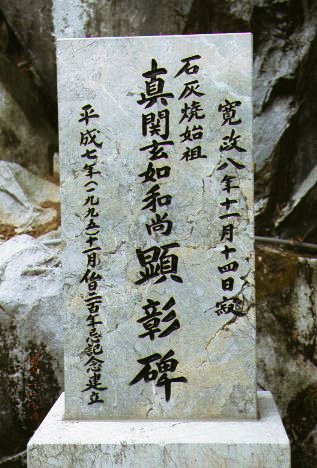 寛政八年十一月十四日寂
石灰焼始祖
真関玄如和尚顕彰碑
平成七年(一九九五)十一月 二百年忌記念建立